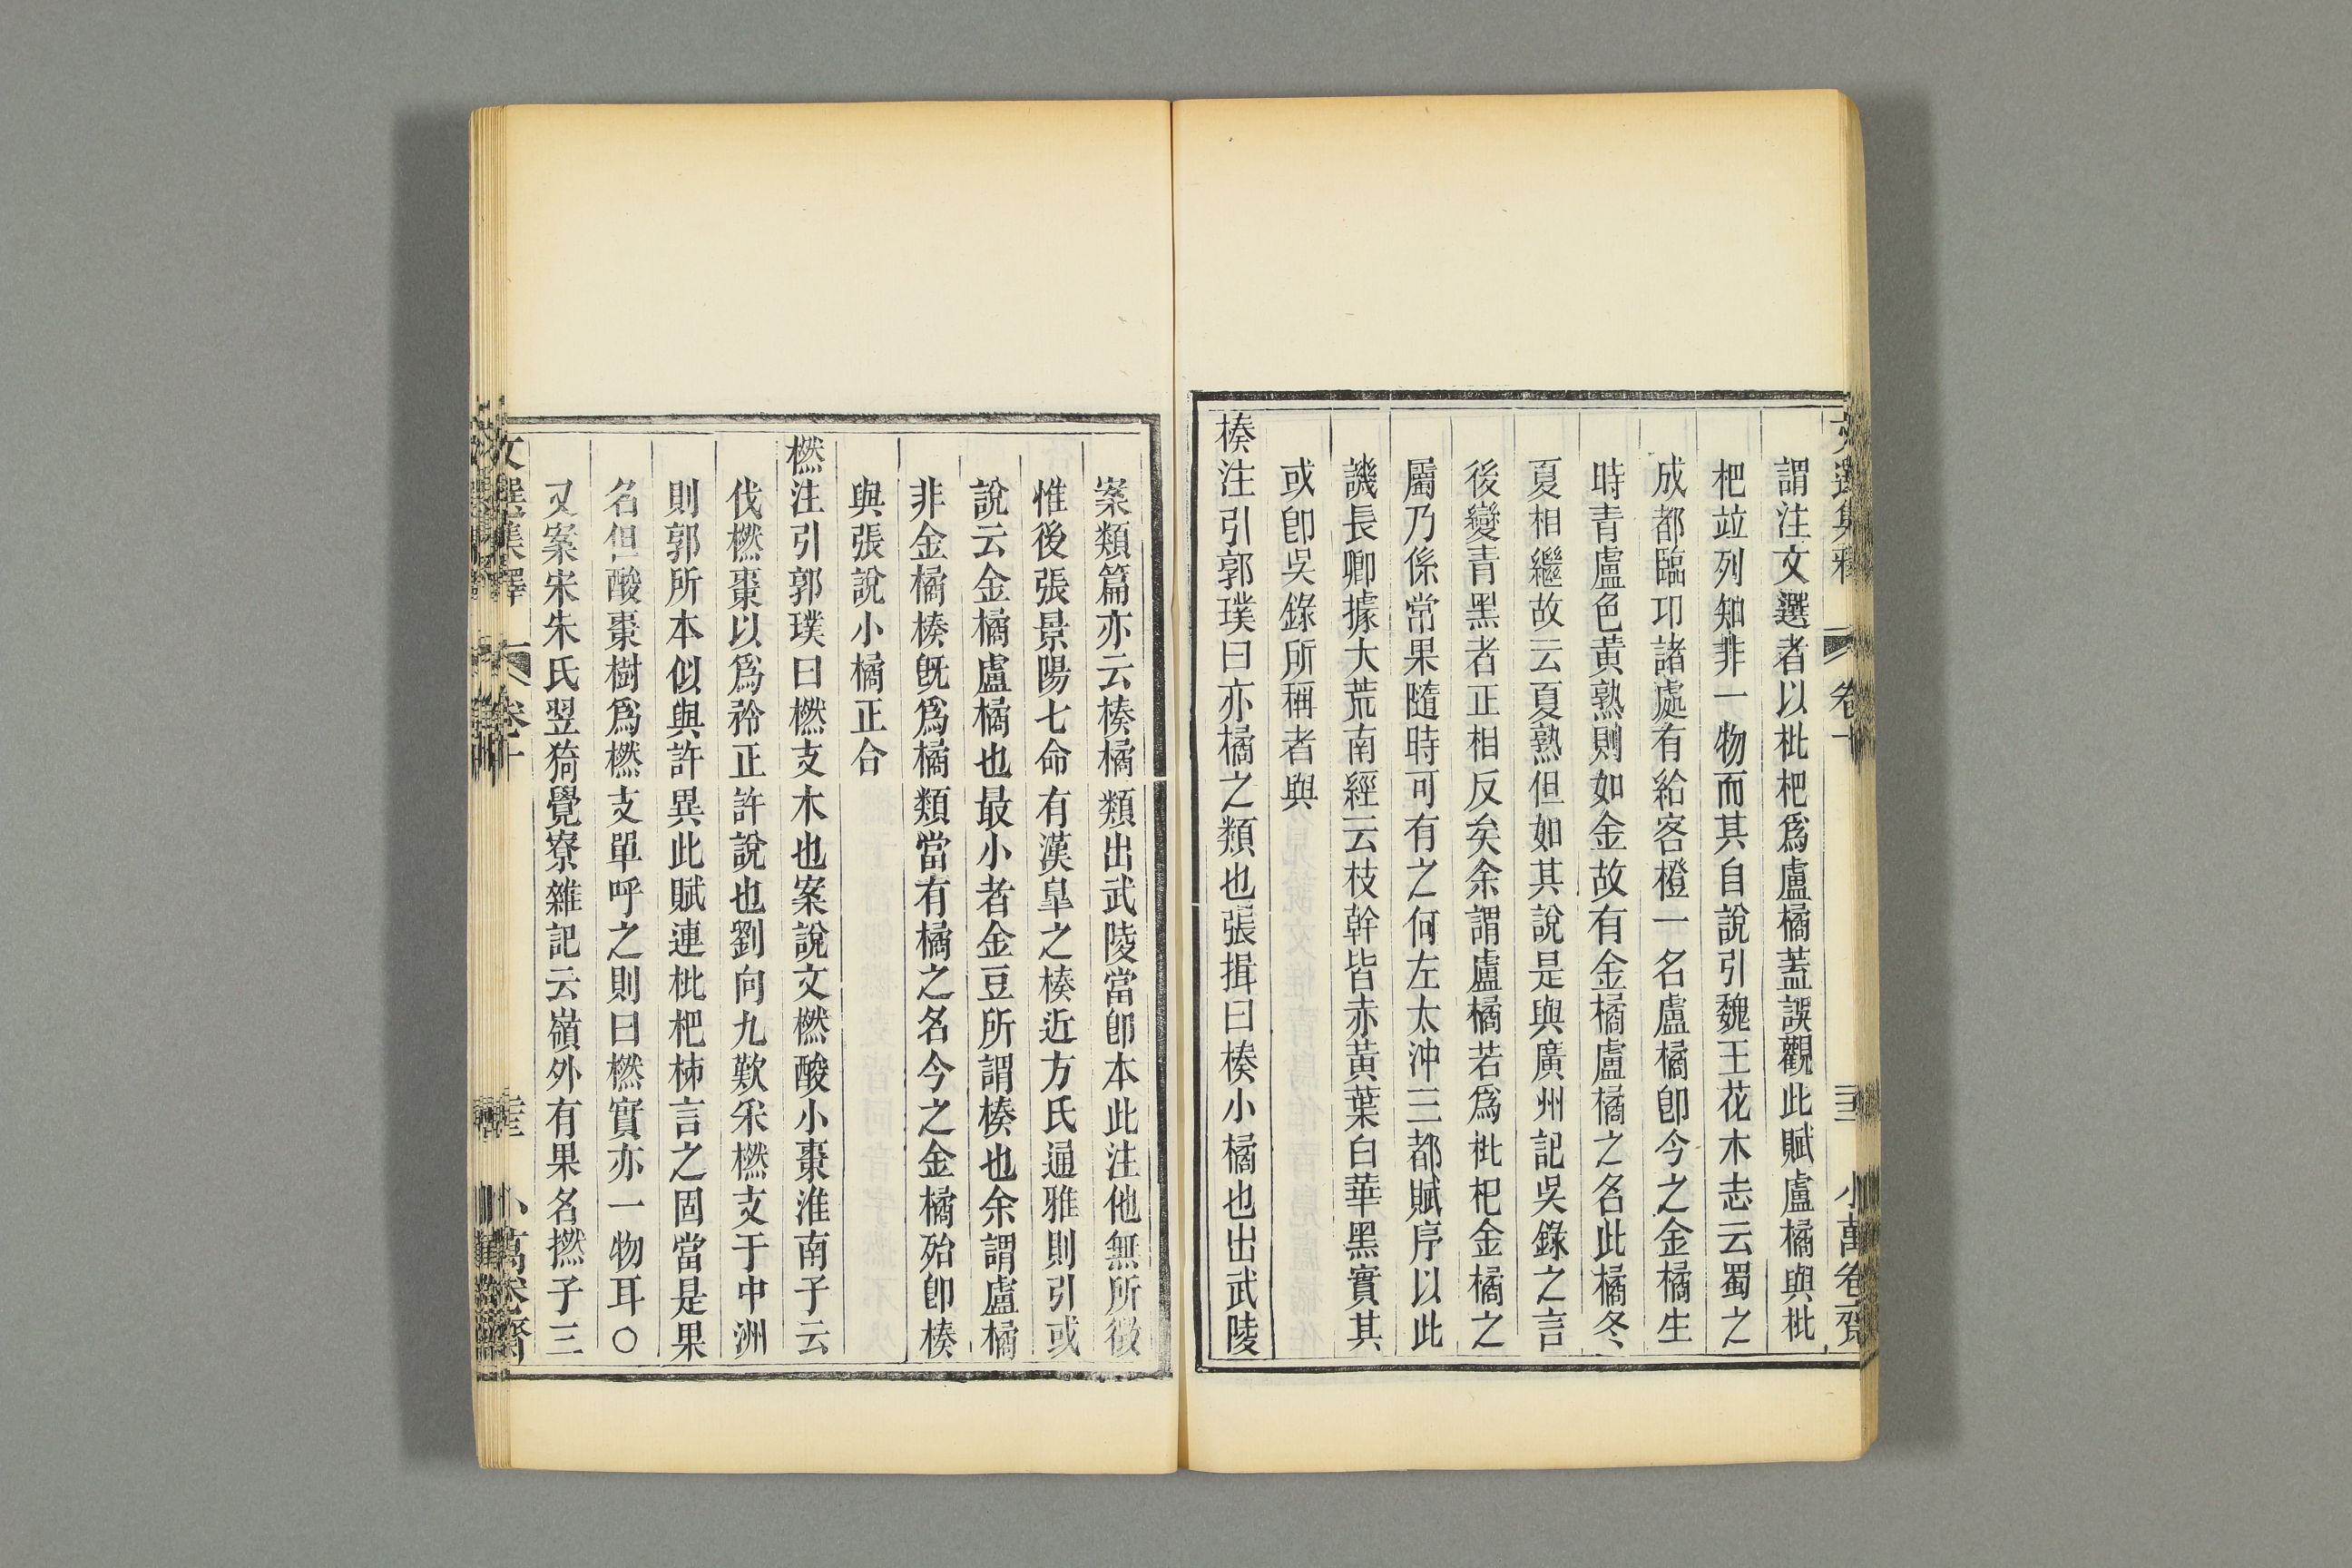 謂注文選者以枇杷爲盧橘蓋誤觀此賦盧橘與枇
杷竝列知非一物而其自說引魏王花木志云蜀之
成都臨卭諸處有給客橙一名盧橘卽今之金橘生
時青盧色黃熟則如金故有金橘盧橘之名此橘冬
夏相繼故云夏熟但如其說是與廣州記吳錄之言
後變青黑者正相反矣余謂盧橘若爲枇杷金橘之
屬乃係常果隨時可有之何左太沖三都賦序以此
譏長卿據大荒南經云枝幹皆赤黃葉白華黑實其
或卽吳錄所稱者與
楱注引郭璞曰亦橘之類也張揖曰楱小橘也出武陵
案類篇亦云楱橘類出武陵當卽本此注他無所徵
惟後張景陽七命有漢皐之楱近方氏通雅則引或
說云金橘盧橘也最小者金豆所謂楱也余謂盧橘
非金橘楱旣爲橘類當有橘之名今之金橘殆卽楱
與張說小橘正合
橪注引郭璞曰橪支木也案說文橪酸小棗淮南子云
伐橪棗以爲矜正許說也劉向九歎采橪支于中洲
則郭所本似與許異此賦連枇杷柹言之固當是果
名但酸棗樹爲橪支單呼之則曰橪實亦一物耳○
又案宋朱氏翌猗覺寮雜記云嶺外有果名撚子三
文選集釋 卷十 小萬卷齋